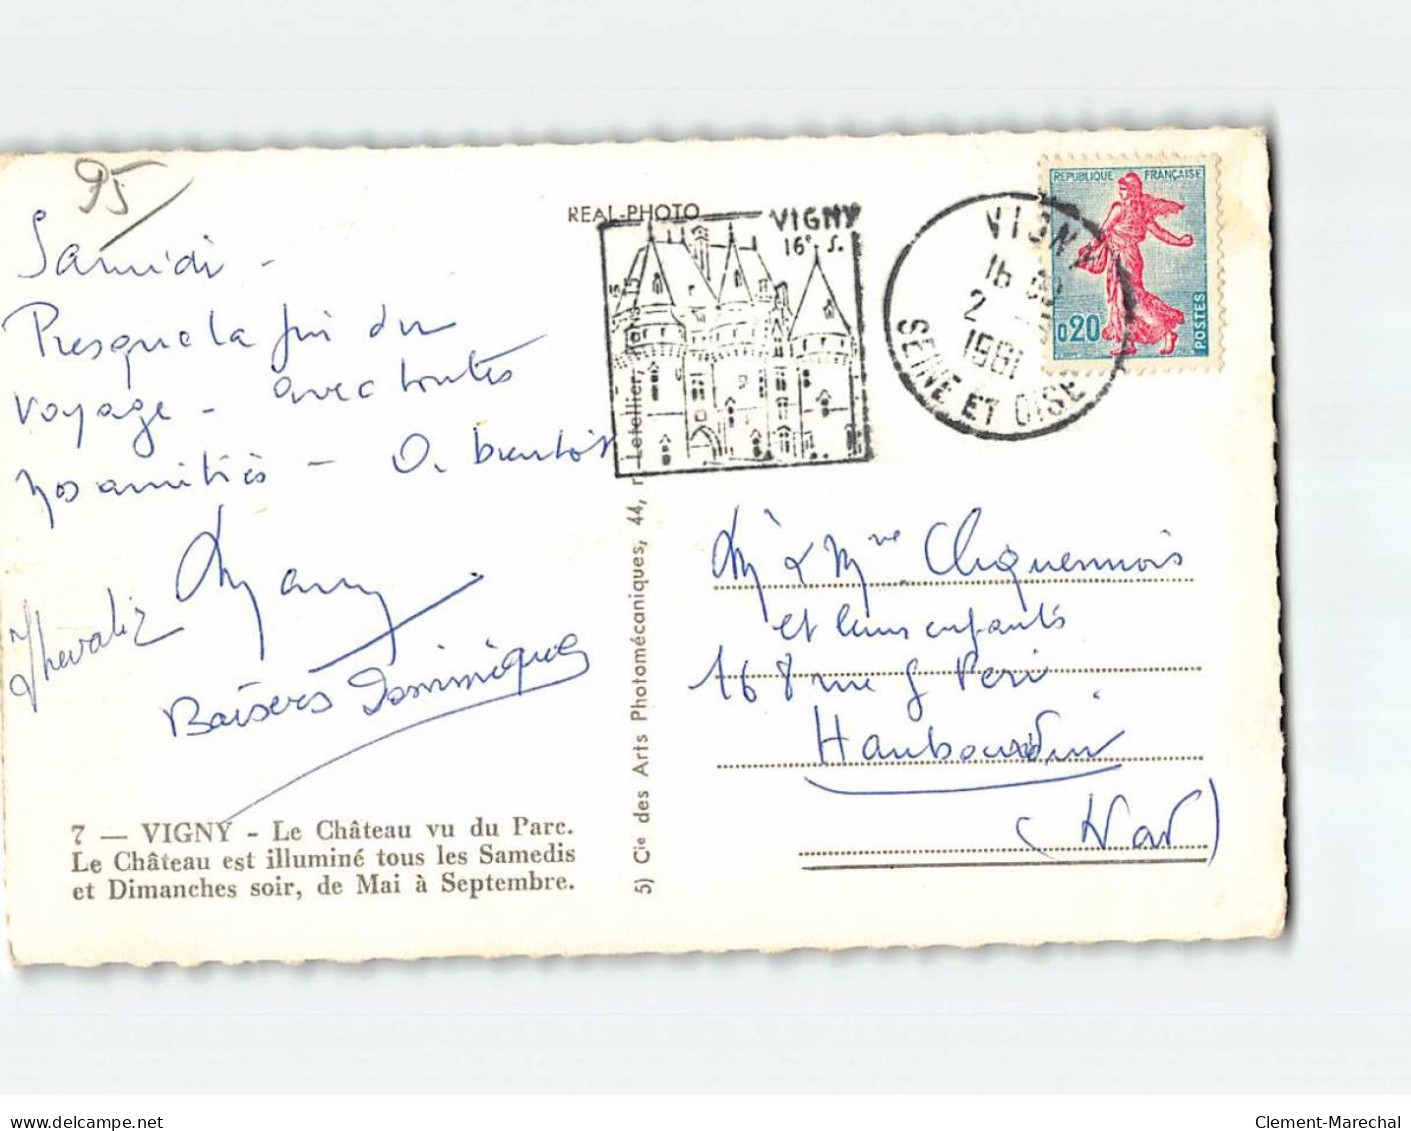 95
Samedi -
Presque la fin du
voyage - avec toutes
nos amitiés - A bientôt
Baisers Dominique
7 — VIGNY - Le Château vu du Parc.
Le Château est illuminé tous les Samedis
et Dimanches soir, de Mai à Septembre.
REAL-PHOTO
5) Cie des Arts Photomécaniques, 44, r. Letellier, Paris 15
VIGNY
16e S.
VIGNY
16
2
1961
SEINE ET OISE
REPUBLIQUE FRANÇAISE
0,20
POSTES
Mr & Mme Cliquennois
et leurs enfants
168 rue G Peri
Haubourdin
(Nord)
www.delcampe.net
Clement-Marechal